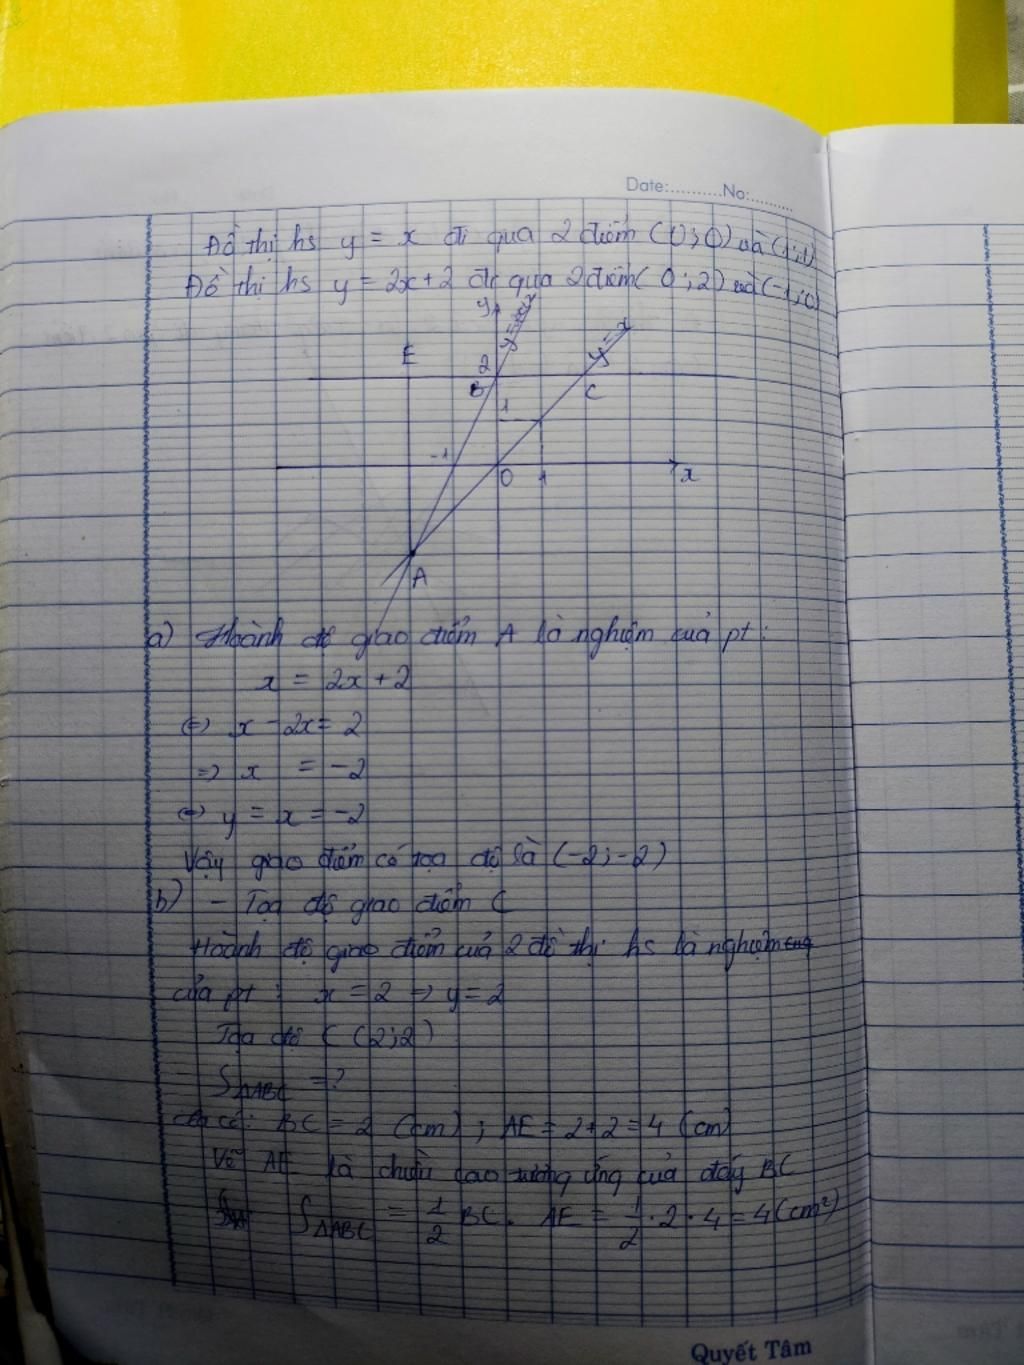 Date:..........No:.........
Đồ thị hs y = x đi qua 2 điểm (0;0) và (1;1)
Đồ thị hs y = 2x+2 đi qua 2 điểm( 0;2) và (-1;0)
y
y=x
E
2
B
C
1
-1
O
1
x
A
a) Hoành độ giao điểm A là nghiệm của pt:
x = 2x+2
⇔ x - 2x = 2
⇒ x = -2
⇔ y = x = -2
Vậy giao điểm có tọa độ là (-2;-2)
b) - Tọa độ giao điểm C
Hoành độ giao điểm của 2 đồ thị hs là nghiệm
của pt : x = 2 ⇒ y = 2
Tọa độ C (2;2)
SΔABC = ?
Ta có: BC = 2 (cm) ; AE = 2+2 = 4 (cm)
Vẽ AE là chiều cao tương ứng của đáy BC
SΔABC = 1/2 BC. AE = 1/2 . 2 . 4 = 4 (cm²)
Quyết Tâm